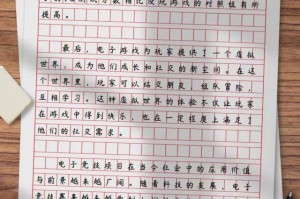 测试分数相比没玩游戏的对照组有所
提高。
最后，电子游戏为玩家提供了一个虚拟
世界，成为他们成长和社交的新空间。在这
个世界里，玩家可以结交新友，组队冒险，
互相学习。这种虚拟世界的体验不仅让玩家
在游戏中得到快乐，也在一定程度上满足了
他们的社交需求。
电子竞技项目在当今社会中的应用价值
与前景越来越广阔。随着科技的发展，电子